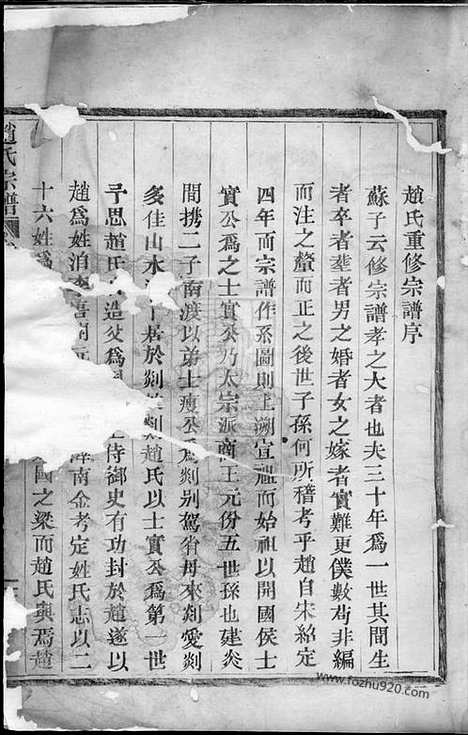 趙氏重修宗譜序
蘇子云修宗譜孝之大者也夫三十年為一世其間生
者卒者塟者男之婚者女之嫁者實難更僕數苟非編
而注之釐而正之後世子孫何所稽考乎趙自宋紹定
四年而宗譜作系圖則上溯宣祖而始祖以開國侯士
實公為之士實公乃太宗派商王元份五世孫也建炎
間携二子南渡以弟士瘦公為剡别駕省母來剡愛剡
多佳山水卜居於剡剡趙氏以士實公為第一世
予思趙氏造父為侍御史有功封於趙遂以
趙為姓洎南金考定姓氏志以二
十六姓國之梁而趙氏與焉趙
趙氏宗譜
www.fozhu920.com